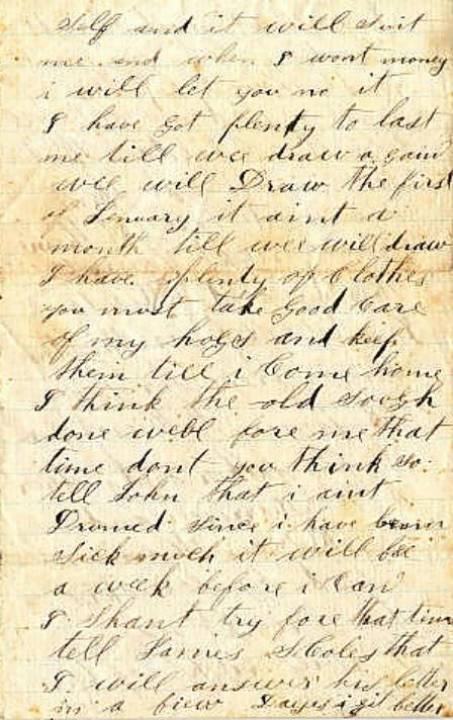 Self and it will Suit
me and when I wont money
i will let you no it
I have got plenty to last
me till wee draw a gain
wee will Draw the first
of January it aint a
month till wee will draw
I have plenty of Clothes
you must take good Care
of my hogs and keep
them till i Come home
I think the old Sough
done well fore me that
time dont you think So
tell John that i aint
Drumed Since i have
Sick much it will bee
a week before i Can
I Shant try fore that time
tell James that
I will answer his letter
in a fiew Dayes i get better